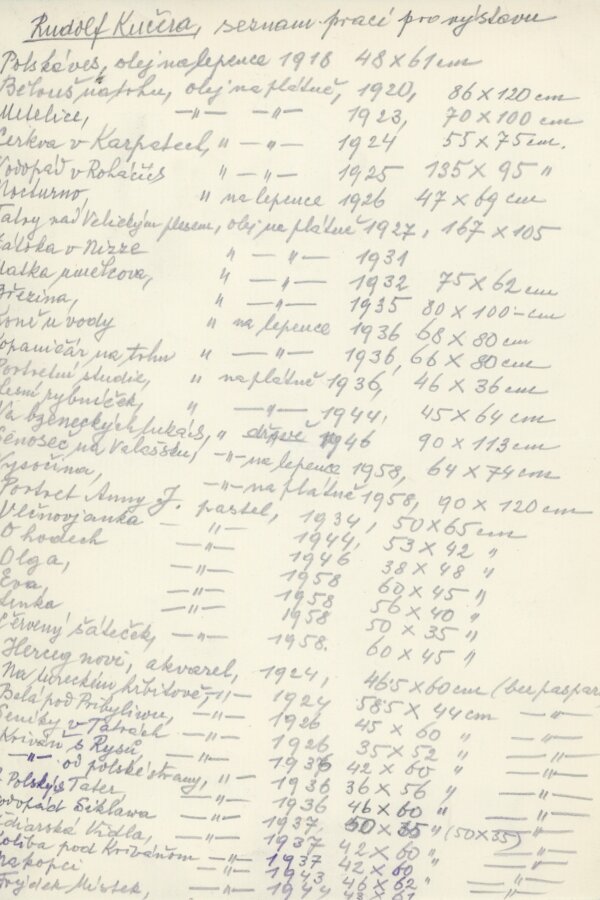 Rudolf Kučera, seznam prací pro výstavu
Polská ves, olej na lepence 1918 48 x 61 cm
Bělouš na trhu, olej na plátně, 1920, 86 x 120 cm
Metelice, —"— —"— 1923, 70 x 100 cm
Cerkva v Karpatech, " —"— 1924 55 x 75 cm.
Vodopád v Roháčích " —"— 1925 135 x 95 "
Nocturno, " na lepence 1926 47 x 69 cm
Tatry nad Velickým plesem, olej na plátně 1927, 167 x 105
v Nizze " —"— 1931
Matka umělcova, " —"— 1932 75 x 62 cm
Březina, " —"— 1935 80 x 100 cm
Koně u vody " na lepence 1936 68 x 80 cm
Kopaničár na trhu " —"— 1936, 66 x 80 cm
Portrétní studie, " na plátně 1936, 46 x 36 cm
Lesní rybníček, " —"— 1944, 45 x 64 cm
Na bzeneckých lukách, " 1946 90 x 113 cm
Senoseč na Valašsku, —"— na lepence 1958, 64 x 74 cm
Vysočina, —"— na plátně 1958, 90 x 120 cm
Portret Anny J. pastel, 1934, 50 x 65 cm
Vlčnovjanka —"— 1944, 53 x 42 "
O hodech —"— 1946 38 x 48 "
Olga, —"— 1958 60 x 45 "
Eva —"— 1958 56 x 40 "
Lenka —"— 1958 50 x 35 "
Červený šáteček, —"— 1958. 60 x 45 "
Herceg novi, akvarel, 1924, 46.5 x 60 cm (bez paspar
Na tureckém hřbitově, —"— 1924 58.5 x 44 cm —"—
Belá pod Pribylinu, —"— 1926 45 x 60 " —"—
v Tatrách —"— 1926 35 x 52 " —"—
Kriváň s Rysů —"— 1936 42 x 60 " —"—
—"— od polské strany, —"— 1936 36 x 56 " —"—
Z Polských Tater, —"— 1936 46 x 60 " —"—
Vodopád Siklawa —"— 1937. 50 x 35 " (50 x 35) —"—
Ždiarská Vidla, —"— 1937 42 x 60 " —"—
Koliba pod Kriváňom —"— 1937 42 x 60 " —"—
Na kopci —"— 1943 46 x 62 " —"—
Frýdek Místek, —"— 1944